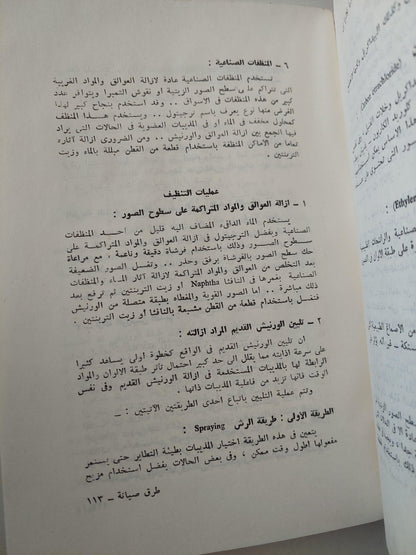 ٦ – المنظفات الصناعية :
تستخدم المنظفات الصناعية عادة لازالة العوالق والمواد الغريبة
التى تتراكم على سطح الصور الزيتية أو نقوش التمبرا ويتوافر عدد
كبير من هذه المنظفات فى الاسواق .. وقد استخدم بنجاح كبير لهذا
الغرض منها نوع يعرف باسم تريجيتول .. ويستخدم هذا المنظف
كمحلول مخفف فى الماء أو فى المذيبات العضوية فى الحالات التى يراد
فيها الجمع بين ازالة العوالق والورنيش .. ومن الضرورى ازالة آثاره
تماما من الاماكن المنظفة باستخدام قطعة من القطن مبللة بالماء وزيت
التربنتين .
عمليات التنظيف
١ – ازالة العوالق والمواد المتراكمة على سطوح الصور :
يستخدم الماء الدافىء المضاف اليه قليل من أحد المنظفات
الصناعية ويفضل التريجيتول لازالة العوالق والمواد المتراكمة على
سطوح الصور وذلك باستخدام فرشاة دقيقة وناعمة ، مع مراعاة
حك سطح الصور بالفرشاة برفق وحذر .. وتغسل الصور الضعيفة
بعد التخلص من العوالق والمواد المتراكمة لازالة آثار الماء والمنظفات
الصناعية بغمرها فى النافثا Naphtha أو زيت التربنتين ثم ترفع بعد
ذلك مباشرة .. أما الصور القوية والمغطاه بطبقة متصلة من الورنيش
فتغسل باستخدام قطعة من القطن مشبعة بالنافثا أو زيت التربنتين .
٢ – تليين الورنيش القديم المراد ازالته :
ان تليين الورنيش القديم فى الواقع كخطوة أولى يساعد كثيرا
على سرعة اذابته مما يقلل الى حد كبير احتمال تأثر طبقة الالوان والمواد
الرابطة لها بالمذيبات المستخدمة فى ازالة الورنيش القديم وفى نفس
الوقت فانها تزيد من فاعلية المذيبات ذاتها .
وتتم عملية التليين باتباع احدى الطريقتين الآتيتين : –
الطريقة الأولى : طريقة الرش Spraying :
يتعين فى هذه الطريقة اختيار المذيبات بطيئة التطاير حتى يستمر
مفعولها أطول وقت ممكن ، وفى بعض الحالات يفضل استخدام مزيج
طرق صيانة – ١١٣